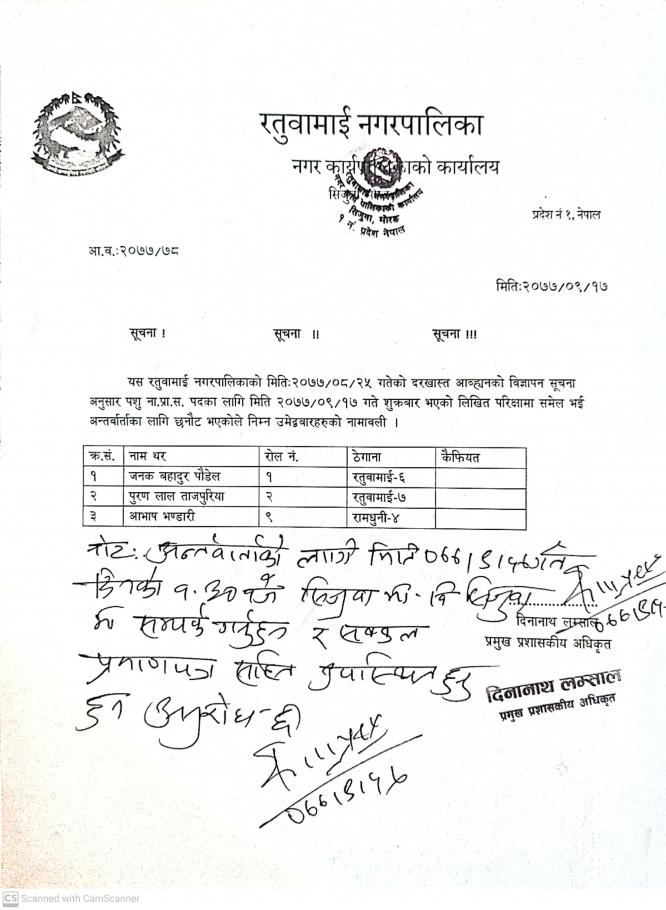 रतुवामाई नगरपालिका
नगर कार्यपालिकाको कार्यालय
रतुवामाई नगरपालिका
नगर कार्यपालिकाको कार्यालय
सिजुवा, मोरङ
१ नं. प्रदेश नेपाल
प्रदेश नं १, नेपाल
आ.व.:२०७७/७८
मिति:२०७७/०९/१७
सूचना ! सूचना !! सूचना !!!
यस रतुवामाई नगरपालिकाको मिति:२०७७/०८/२५ गतेको दरखास्त आव्ह्यनको विज्ञापन सूचना
अनुसार पशु ना.प्रा.स. पदका लागि मिति २०७७/०९/१७ गते शुक्रवार भएको लिखित परिक्षामा समेल भई
अन्तर्वार्ताका लागि छनौट भएकोले निम्न उमेद्ववारहरुको नामावली ।
क्र.सं. नाम थर रोल नं. ठेगाना कैफियत
१ जनक बहादुर पौडेल १ रतुवामाई-६
२ पुरण लाल ताजपुरिया २ रतुवामाई-७
३ आभाष भण्डारी ९ रामधुनी-४
नोट: अन्तर्वार्ताको लागी मिति गते
दिनका बजे सिजुवा
मा सम्पर्क गर्नुहुन र सक्कल
प्रमाणपत्र सहित उपस्थित हुनु
हुन अनुरोध छ।
दिनानाथ लम्साल
प्रमुख प्रशासकीय अधिकृत
दिनानाथ लम्साल
प्रमुख प्रशासकीय अधिकृत
CS Scanned with CamScanner